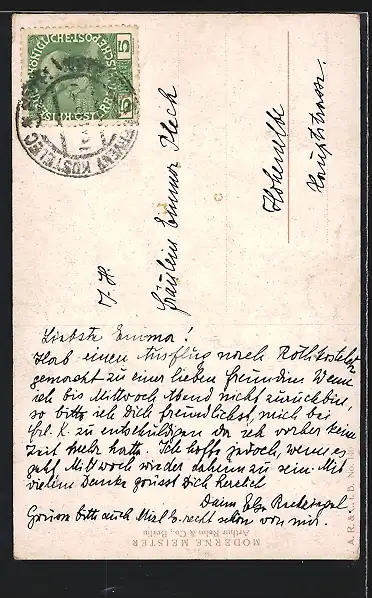 5 5
ČERVENÝ KOSTELEC
Fräulein Emma Fleck
Hohenelbe
Hauptstrasse.
Liebste Emma!
Hab einen Ausflug nach Rothkosteletz
gemacht zu einer lieben Freundin. Wenn
ich bis Mittwoch Abend nicht zurückbin,
so bitte ich Dich freundlichst, mich bei
Frl. K. zu entschuldigen da ich vorher keine
Zeit mehr hatte. Ich hoffe jedoch, wenn es
geht Mittwoch wieder daheim zu sein. Mit
vielem Danke grüsst Dich herzlich
Deine Elsa
Grüsse bitte auch Mizl recht schön von mir.
MODERNE MEISTER
Arthur Rehn & Co., Berlin
A. R. & C. i. B. No.